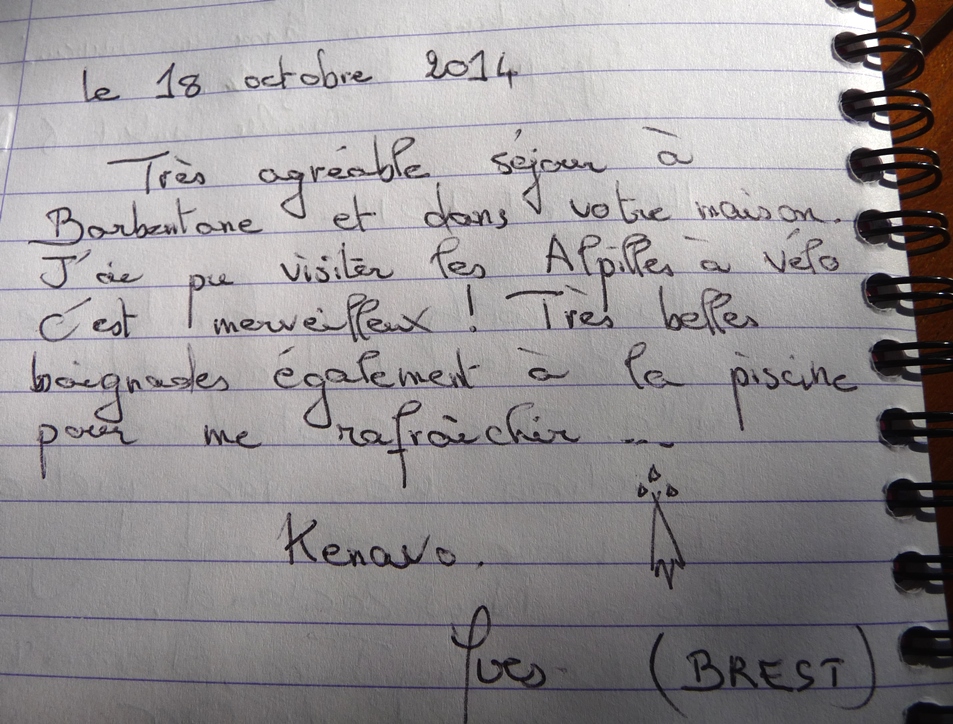 le 18 octobre 2014
Très agréable séjour à
Barbentane et dans votre maison.
J'ai pu visiter les Alpilles à vélo
C'est merveilleux ! Très belles
baignades également à la piscine
pour me rafraîchir ...
Kenavo.
Yves (BREST)